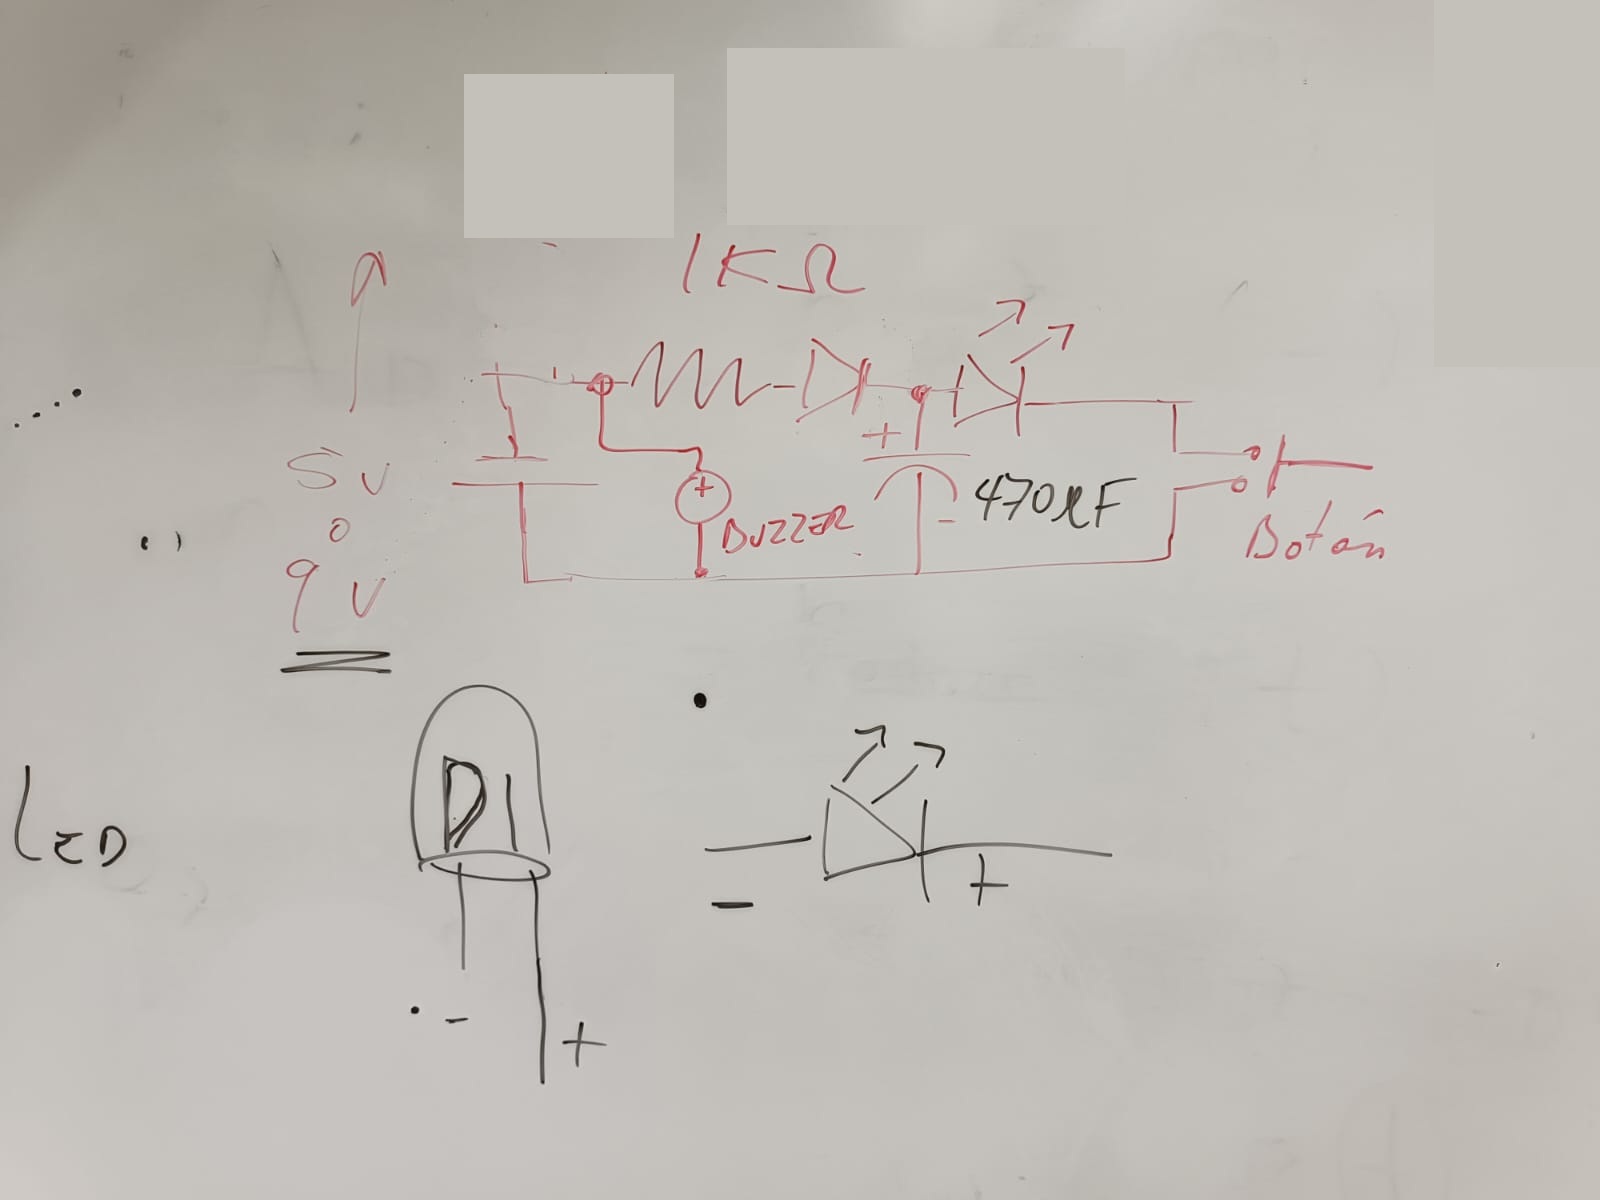 1KΩ
5v
o
9v
+
+
BUZZER
-
470µF
Botón
LED
D1
-
+
-
+